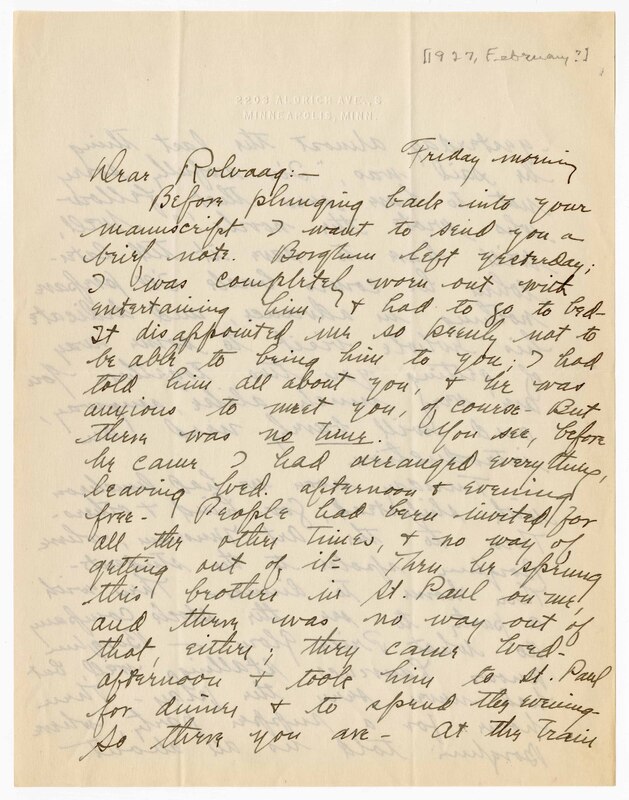 [1927, February?]
2203 ALDRICH AVE., S
MINNEAPOLIS, MINN.
Friday morning
Dear Rolvaag:—
Before plunging back into your
manuscript I want to send you a
brief note. Borghum left yesterday;
I was completely worn out with
entertaining him, & had to go to bed—
It disappointed me so keenly not to
be able to bring him to you; I had
told him all about you, & he was
anxious to meet you, of course— But
there was no time. You see, before
he came I had arranged everything,
leaving Wed. afternoon & evening
free— People had been invited for
all the other times, & no way of
getting out of it— Then he sprung
this brother in St. Paul on me,
and there was no way out of
that, either; they came Wed—
afternoon & took him to St. Paul
for dinner & to spend the evening—
So there you are— At the train